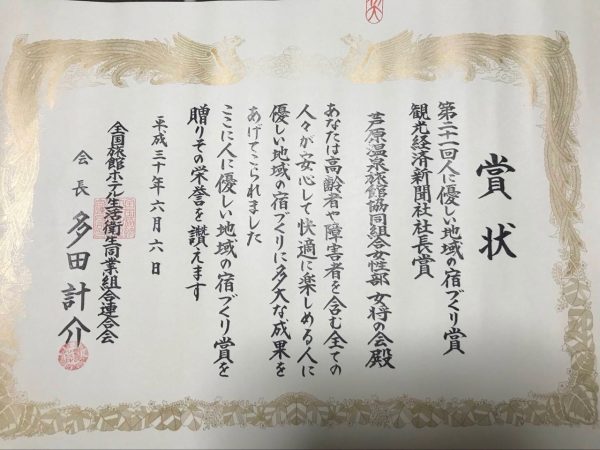 賞状
第二十一回人に優しい地域の宿づくり賞
観光経済新聞社社長賞
芦原温泉旅館協同組合女性部 女将の会殿
あなたは高齢者や障害者を含む全ての
人々が安心して快適に楽しめる人に
優しい地域の宿づくりに多大な成果を
あげてこられました
ここに人に優しい地域の宿づくり賞を
贈りその栄誉を讃えます
平成三十年六月六日
全国旅館ホテル生活衛生同業組合連合会
会長 多田計介